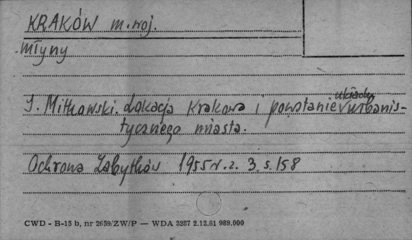 KRAKÓW m. woj.
młyny
J. Mitkowski. Lokacja Krakowa i powstanie układu urbanis-
tycznego miasta.
Ochrona Zabytków 1955 r. z. 3, s. 158
CWD - B-15 b, nr 2659/ZW/P — WDA 2327 2.12.61 989.000